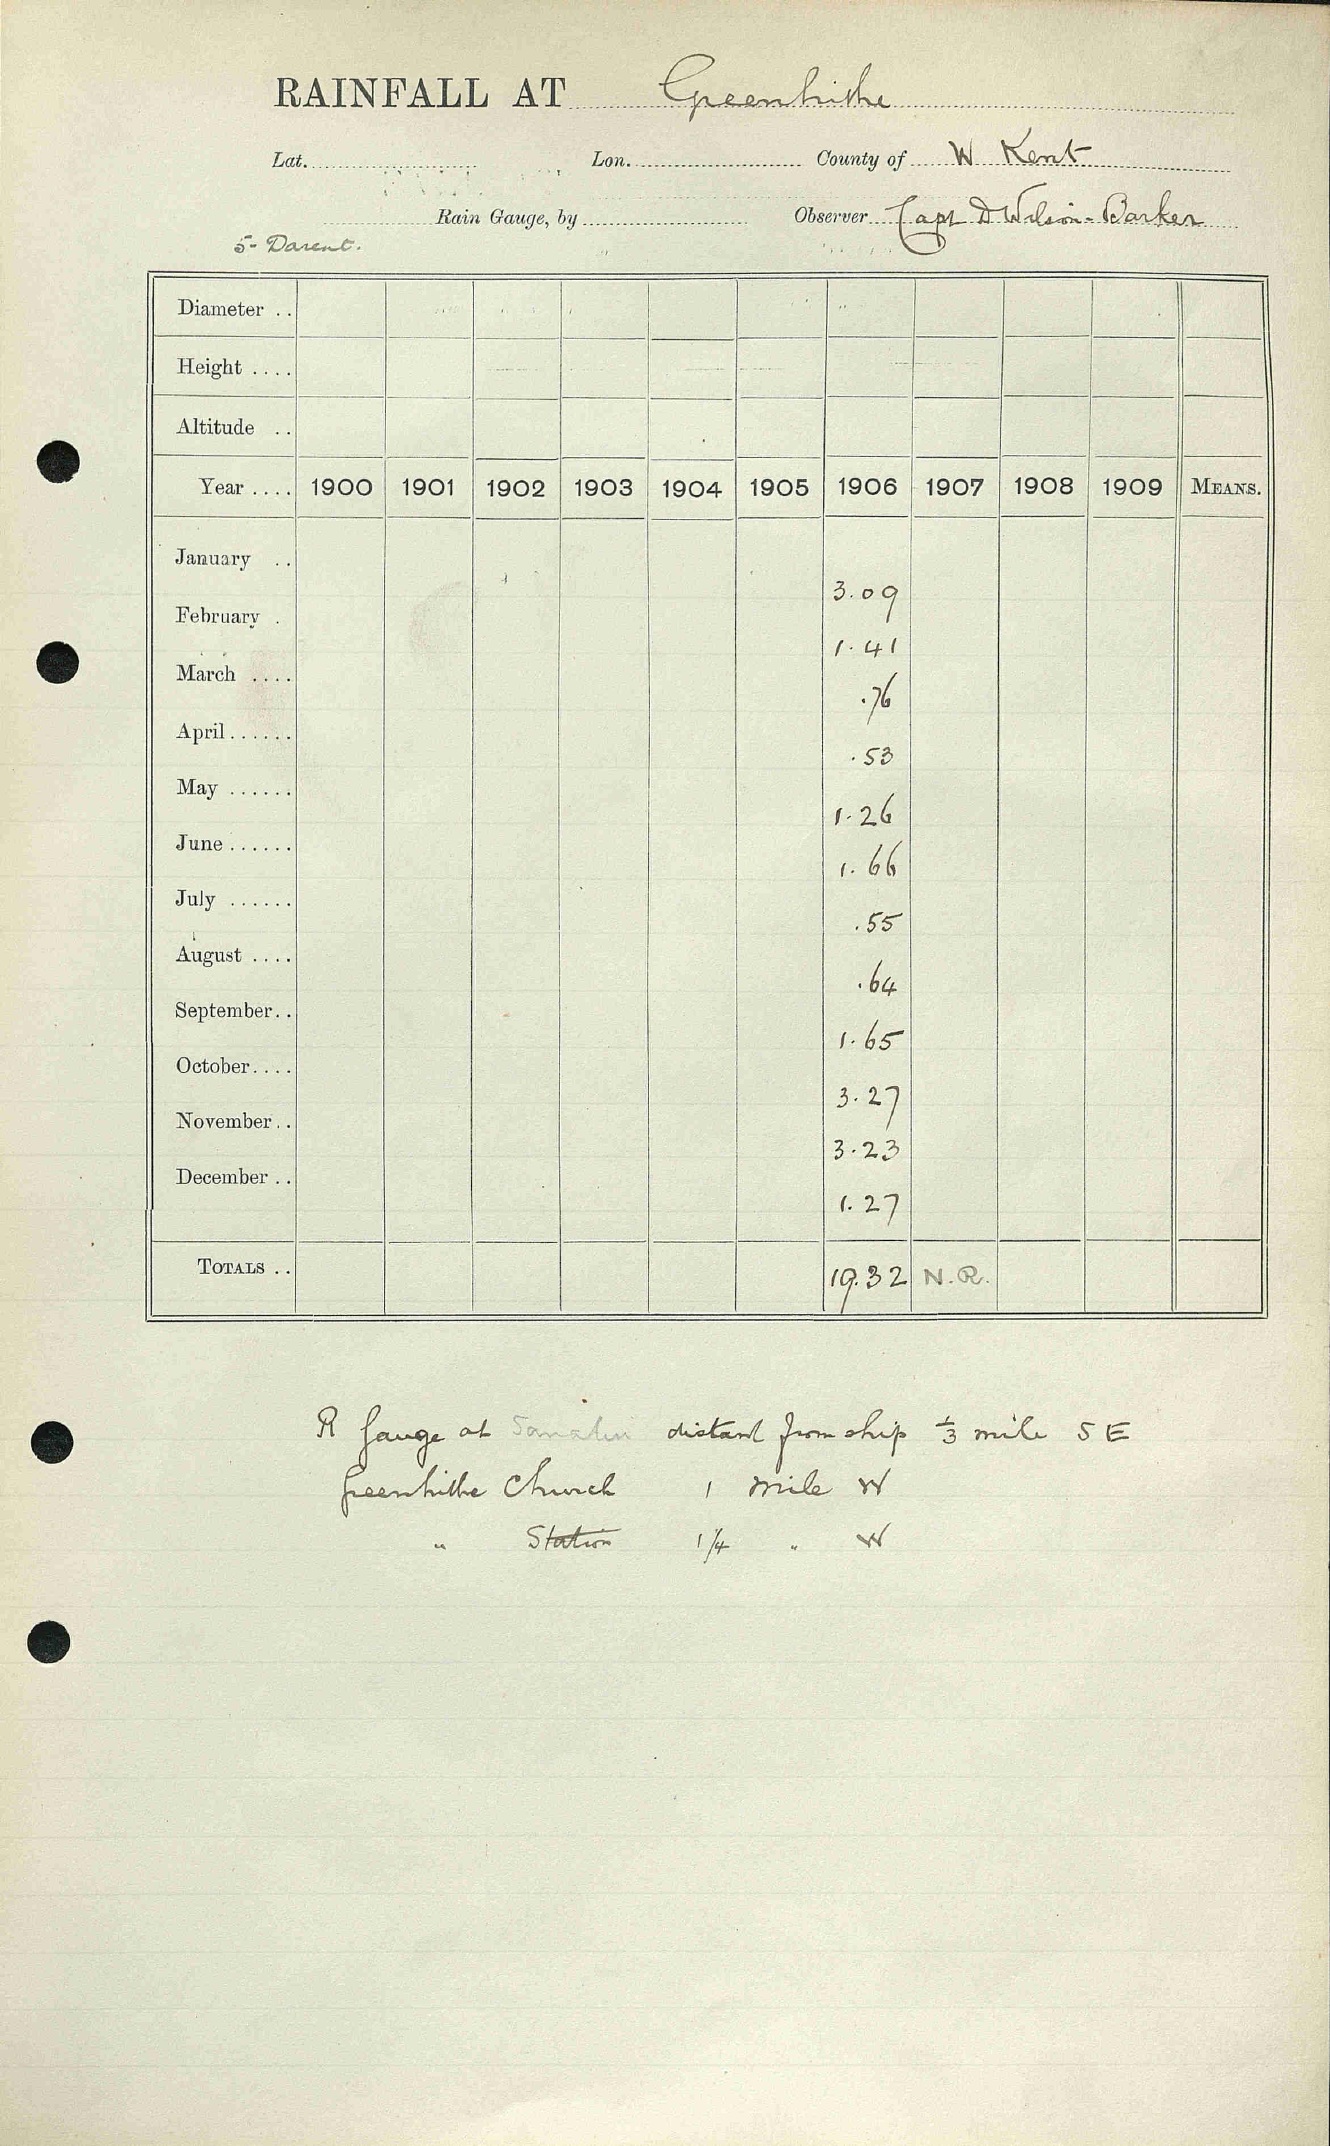 RAINFALL AT Greenhithe
Lat. Lon. County of W Kent
Rain Gauge, by Observer Capt D Wilson-Barker
5- Darent.
Diameter ..
Height ....
Altitude ..
Year .... 1900 1901 1902 1903 1904 1905 1906 1907 1908 1909 MEANS.
January .. 3.09
February . 1.41
March .... .76
April ...... .53
May ...... 1.26
June ...... 1.66
July ...... .55
August .... .64
September.. 1.65
October.... 3.27
November.. 3.23
December .. 1.27
TOTALS .. 19.32 N.R.
R Gauge at distant from ship 1/3 mile S E
Greenhithe Church 1 mile W
" Station 1 1/4 " W